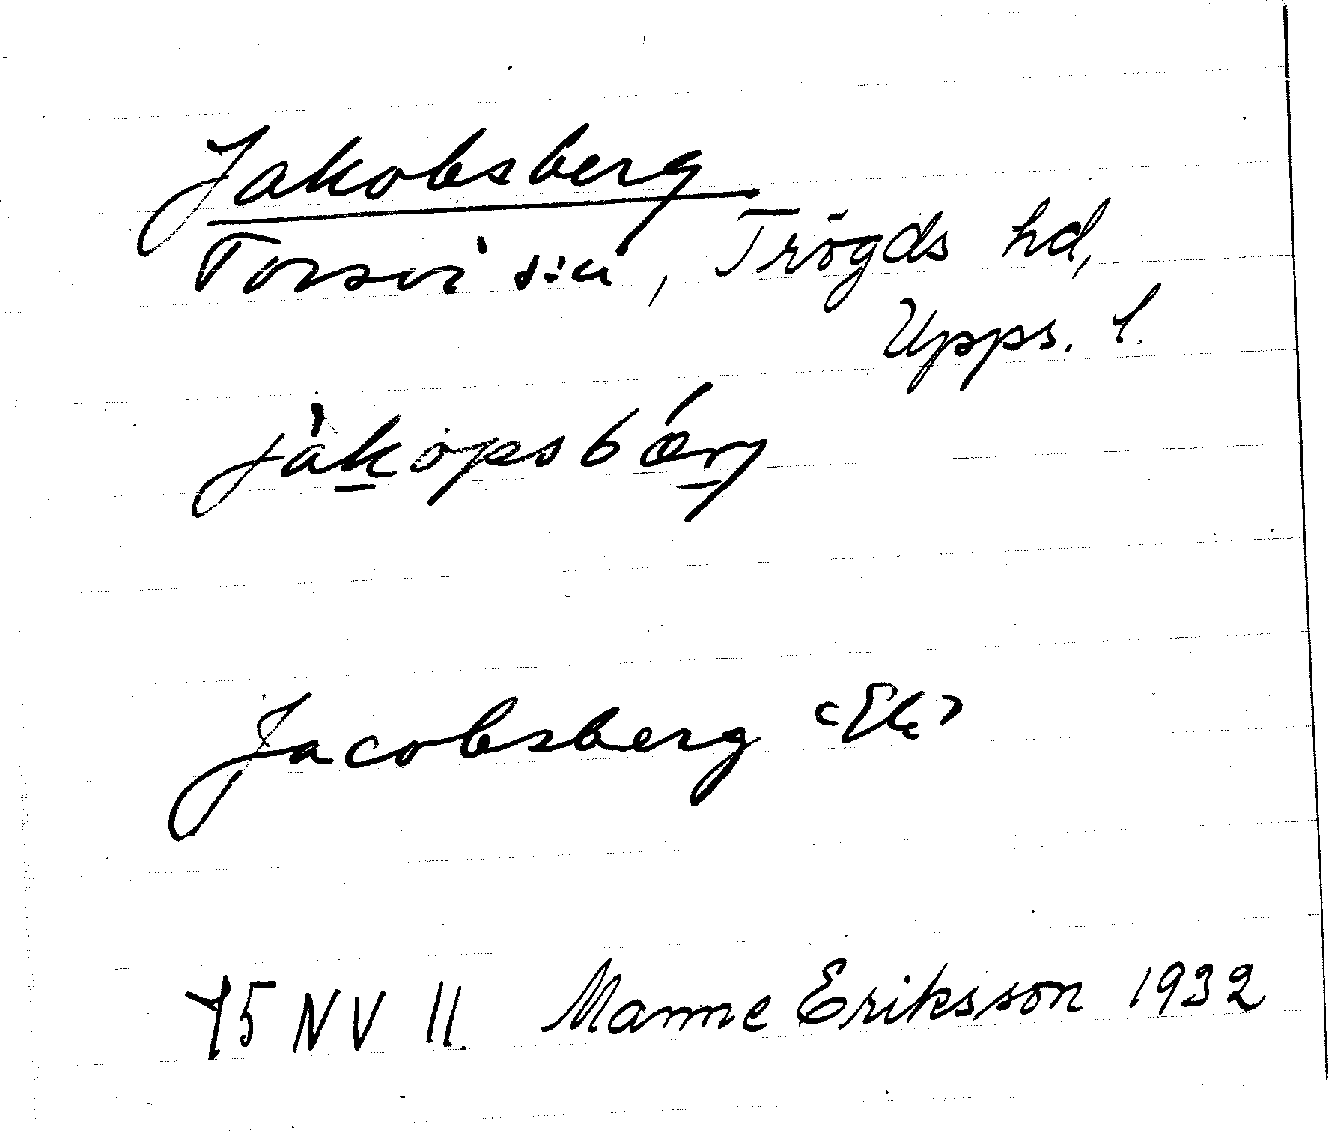 Jakobsberg
Torsvi s:n, Trögds hd,
Upps. l.
jakopsbærj
Jacobsberg <Ek>
75 NV 11 Manne Eriksson 1932